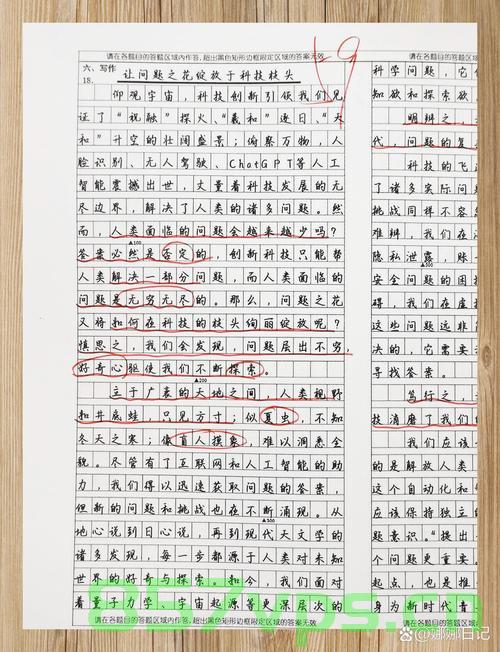 请在各题目的答题区域内作答,超出黑色矩形边框限定区域的答案无效
六、写作
18.
让问题之花绽放于科技枝头
仰观宇宙,科技创新引领我们见
证了“祝融”探火、“羲和”逐日、“天
和”升空的壮阔盛景;俯察万物,人
脸识别、无人驾驶、ChatGPT等人工
智能震撼出世,丈量着科技发展的无
尽边界,解决了人类的诸多问题。然
而,人类面临的问题会越来越少吗?
▲100
答案必然是否定的,创新科技只能帮
人类解决一部分问题,而人类面临的
问题是无穷无尽的。那么,问题之花
又将如何在科技的枝头绚丽绽放呢?
慎思之,我们会发现,问题层出不穷,
好奇心驱使我们不断探索。
▲200
立于广袤的天地之间,人类视野
如井底蛙,只见方寸;似夏虫,不知
冬天之寒;像盲人摸象,难以洞悉全
貌。尽管有了互联网和人工智能的助
力,我们得以迅速获取问题的答案,
但新的问题和挑战也在不断涌现。从
▲300
地心说到日心说,再到现代天文学的
诸多发现,每一步都源于人类对未知
世界的好奇与探索。如今,我们面对
着量子力学、宇宙起源等更深层次的
请在各题目的答题区域内作答,超出黑色矩形边框限定区域的答案无效
请在各题目的答
科学问题,它
知欲和探索欲
明辨之,
代,问题的复
科技的飞
了诸多实际问
挑战同样不容
难辨,我们在
隐私泄露,账
安全问题的困
碍,我们在虚
这些问题远非
决的,它需要
寻找答案。
笃行之,
技清磨了我们
我们应该
的解放人类
这个自动化和
应该保持独立
题意识。“提出
个问题更重要
起点,也是推
身为新时代青
请在各题目的答
@娜娜日记